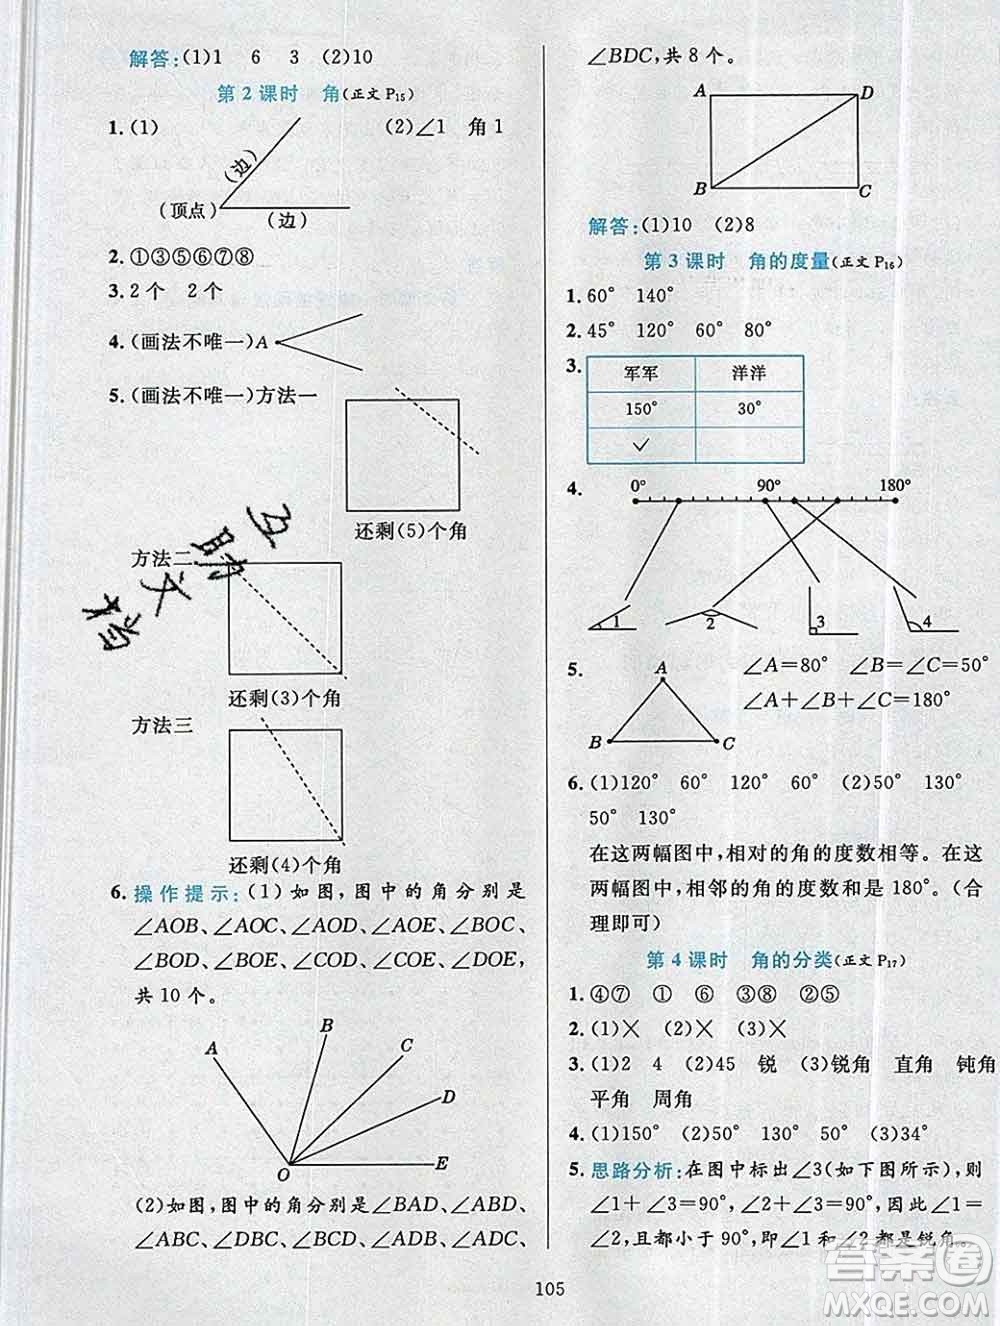 解答:(1)1 6 3 (2)10
第 2 课时 角(正文 P15)
1. (1) (2)∠1 角 1
(边)
(顶点)
(边)
2. ①③④⑤⑥⑦⑧
3. 2 个 2 个
4. (画法不唯一)A
5. (画法不唯一)方法一
还剩(5)个角
方法二
还剩(3)个角
方法三
还剩(4)个角
6. 操作提示:(1)如图,图中的角分别是
∠AOB、∠AOC、∠AOD、∠AOE、∠BOC、
∠BOD、∠BOE、∠COD、∠COE、∠DOE,
共 10 个。
A B C D E O
(2)如图,图中的角分别是∠BAD、∠ABD、
∠ABC、∠DBC、∠BCD、∠ADB、∠ADC、
∠BDC,共 8 个。
A D
B C
解答:(1)10 (2)8
第 3 课时 角的度量(正文 P16)
1. 60° 140°
2. 45° 120° 60° 80°
3.
军军 洋洋
150° 30°
✓
4. 0° 90° 180°
1 2 3 4
5. ∠A=80° ∠B=∠C=50°
∠A+∠B+∠C=180°
A
B C
6. (1)120° 60° 120° 60° (2)50° 130°
50° 130°
在这两幅图中,相对的角的度数相等。在这
两幅图中,相邻的角的度数和是 180°。(合
理即可)
第 4 课时 角的分类(正文 P17)
1. ④⑦ ① ⑥ ③⑧ ②⑤
2. (1)× (2)× (3)×
3. (1)2 4 (2)45 锐 (3)锐角 直角 钝角
平角 周角
4. (1)150° (2)50° 130° 50° (3)34°
5. 思路分析:在图中标出∠3(如下图所示),则
∠1+∠3=90°,∠2+∠3=90°,因此∠1=
∠2,且都小于 90°,即∠1 和∠2 都是锐角。
105
答案圈
MXQE.COM